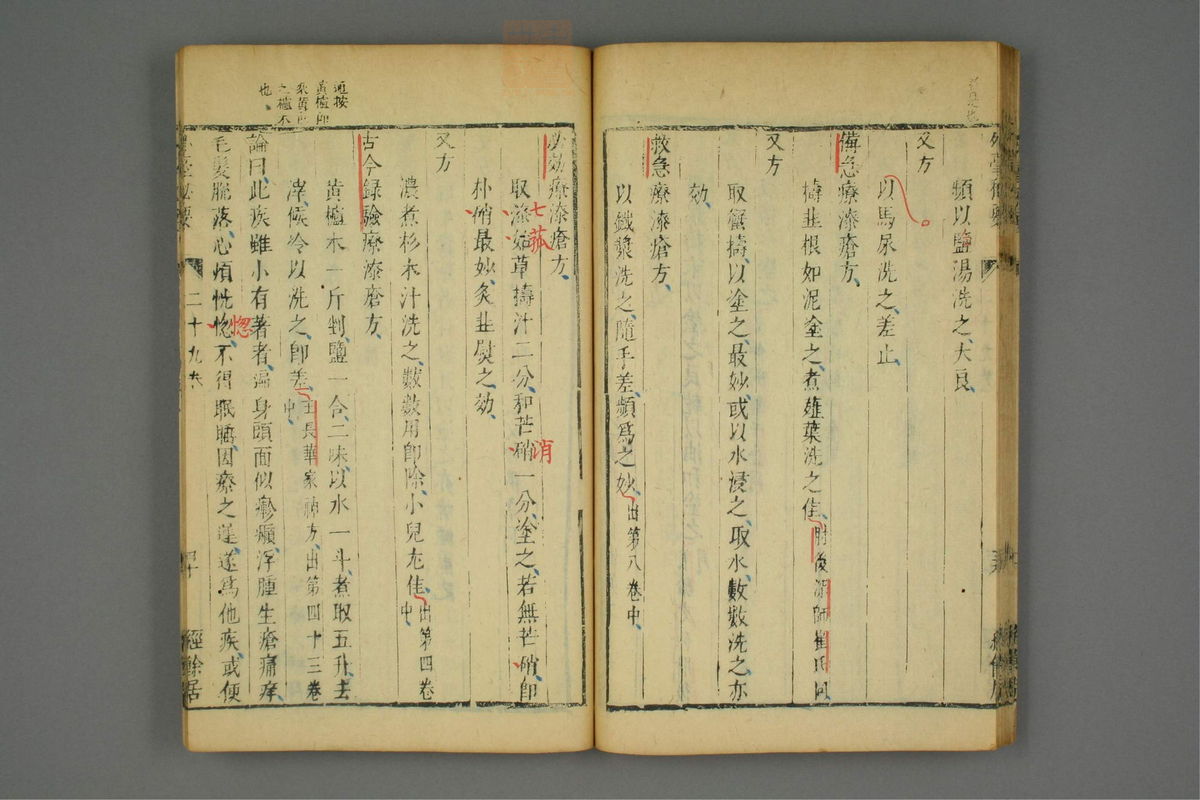 頻以鹽湯洗之、大良、
又方
以馬尿洗之、差止、
備急療漆瘡方、
擣韭根如泥塗之、煮薤葉洗之佳、肘後
又方
取蟹擣、以塗之、最妙、或以水浸之、取水、數數洗之、亦
效、
救急療漆瘡方、
以鐵漿洗之、隨手差、頻為之妙、出第八卷中、
必效療漆瘡方、
取漆姑草擣汁二分、和芒硝一分、塗之、若無芒硝、即
七菰
消
朴硝最妙、灸韭熨之、效、
又方
濃煮杉木汁洗之、數數用即除、小兒尤佳、出第四卷
中、
古今録驗療漆瘡方、
黃櫨木一斤剉、鹽一合、二味、以水一斗、煮取五升、去
滓、候冷以洗之、即差、王長華家祕方、出第四十三卷
中、
論曰、此疾雖小有著者、遍身頭面似癮癩、浮腫生瘡痛痒、
毛髮脫落、心煩恍惚、不得眠睡、因療之遲、遂為他疾、或便
惚
二十九卷
四十
經餘居
通按
黃櫨即
也